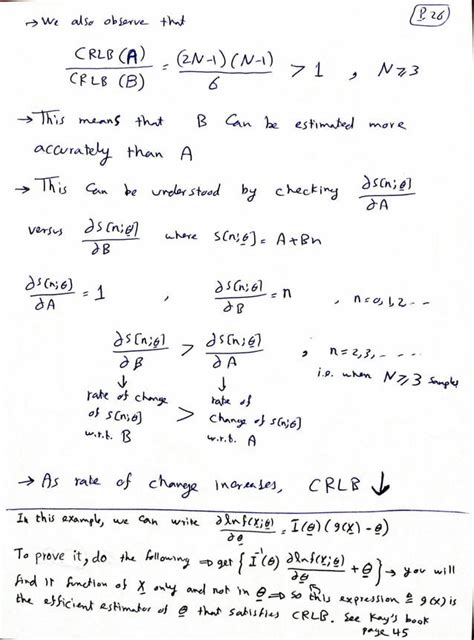 P.26
→ We also observe that
CRLB(A) / CRLB(B) = (2N-1)(N-1) / 6 > 1 , N ≥ 3
→ This means that B Can be estimated more
accurately than A
→ This Can be understood by checking ∂s[n;θ] / ∂A
versus ∂s[n;θ] / ∂B where s[n;θ] = A+Bn
∂s[n;θ] / ∂A = 1 , ∂s[n;θ] / ∂B = n , n=0,1,2 ---
∂s[n;θ] / ∂B > ∂s[n;θ] / ∂A , n=2,3,- ---
i.e. when N ≥ 3 samples
↓ ↓
rate of change > rate of
of s[n;θ] change of s[n;θ]
w.r.t. B w.r.t. A
→ As rate of change increases, CRLB ↓
In this example, we can write ∂lnf(x;θ) / ∂θ = I(θ) (g(x) - θ)
To prove it, do the following ⇒ get { I⁻¹(θ) ∂lnf(x;θ) / ∂θ + θ } → you will
find it function of x only and not in θ ⇒ so this expression ≜ g(x) is
the efficient estimator of θ that satisfies CRLB. See Kay's book
page 45